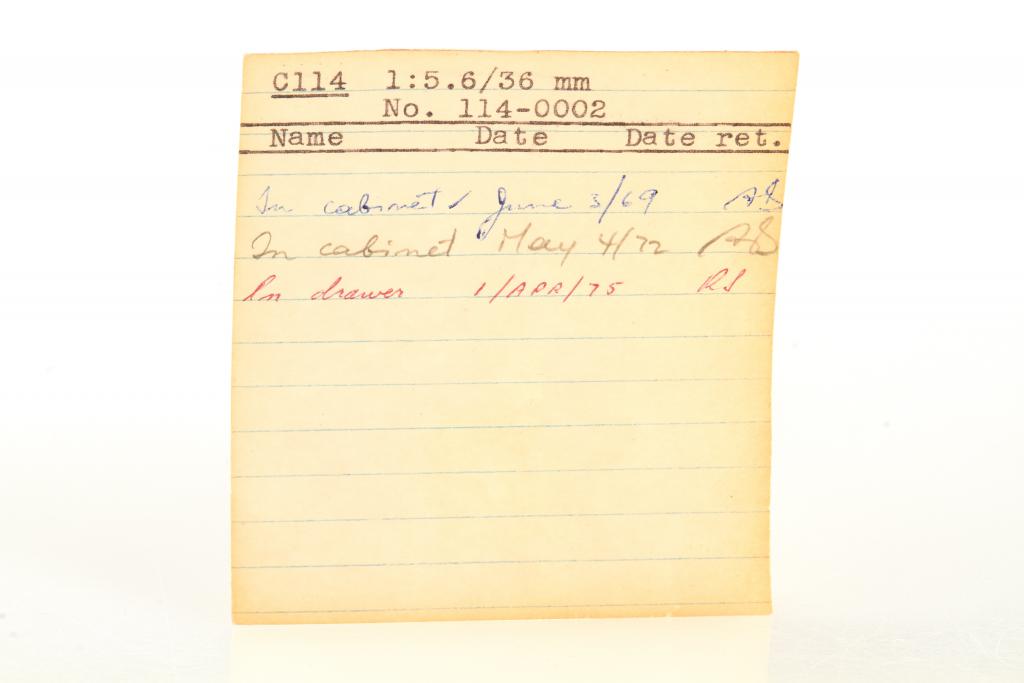 C114 1:5.6/36 mm
No. 114-0002
Name Date Date ret.
In cabinet June 3/69 AS
In cabinet May 4/72 AS
In drawer 1/APR/75 RS